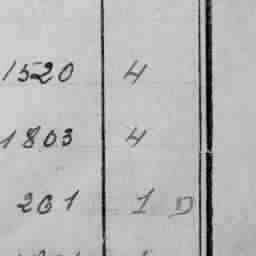 1520 4
1803 4
201 1 D